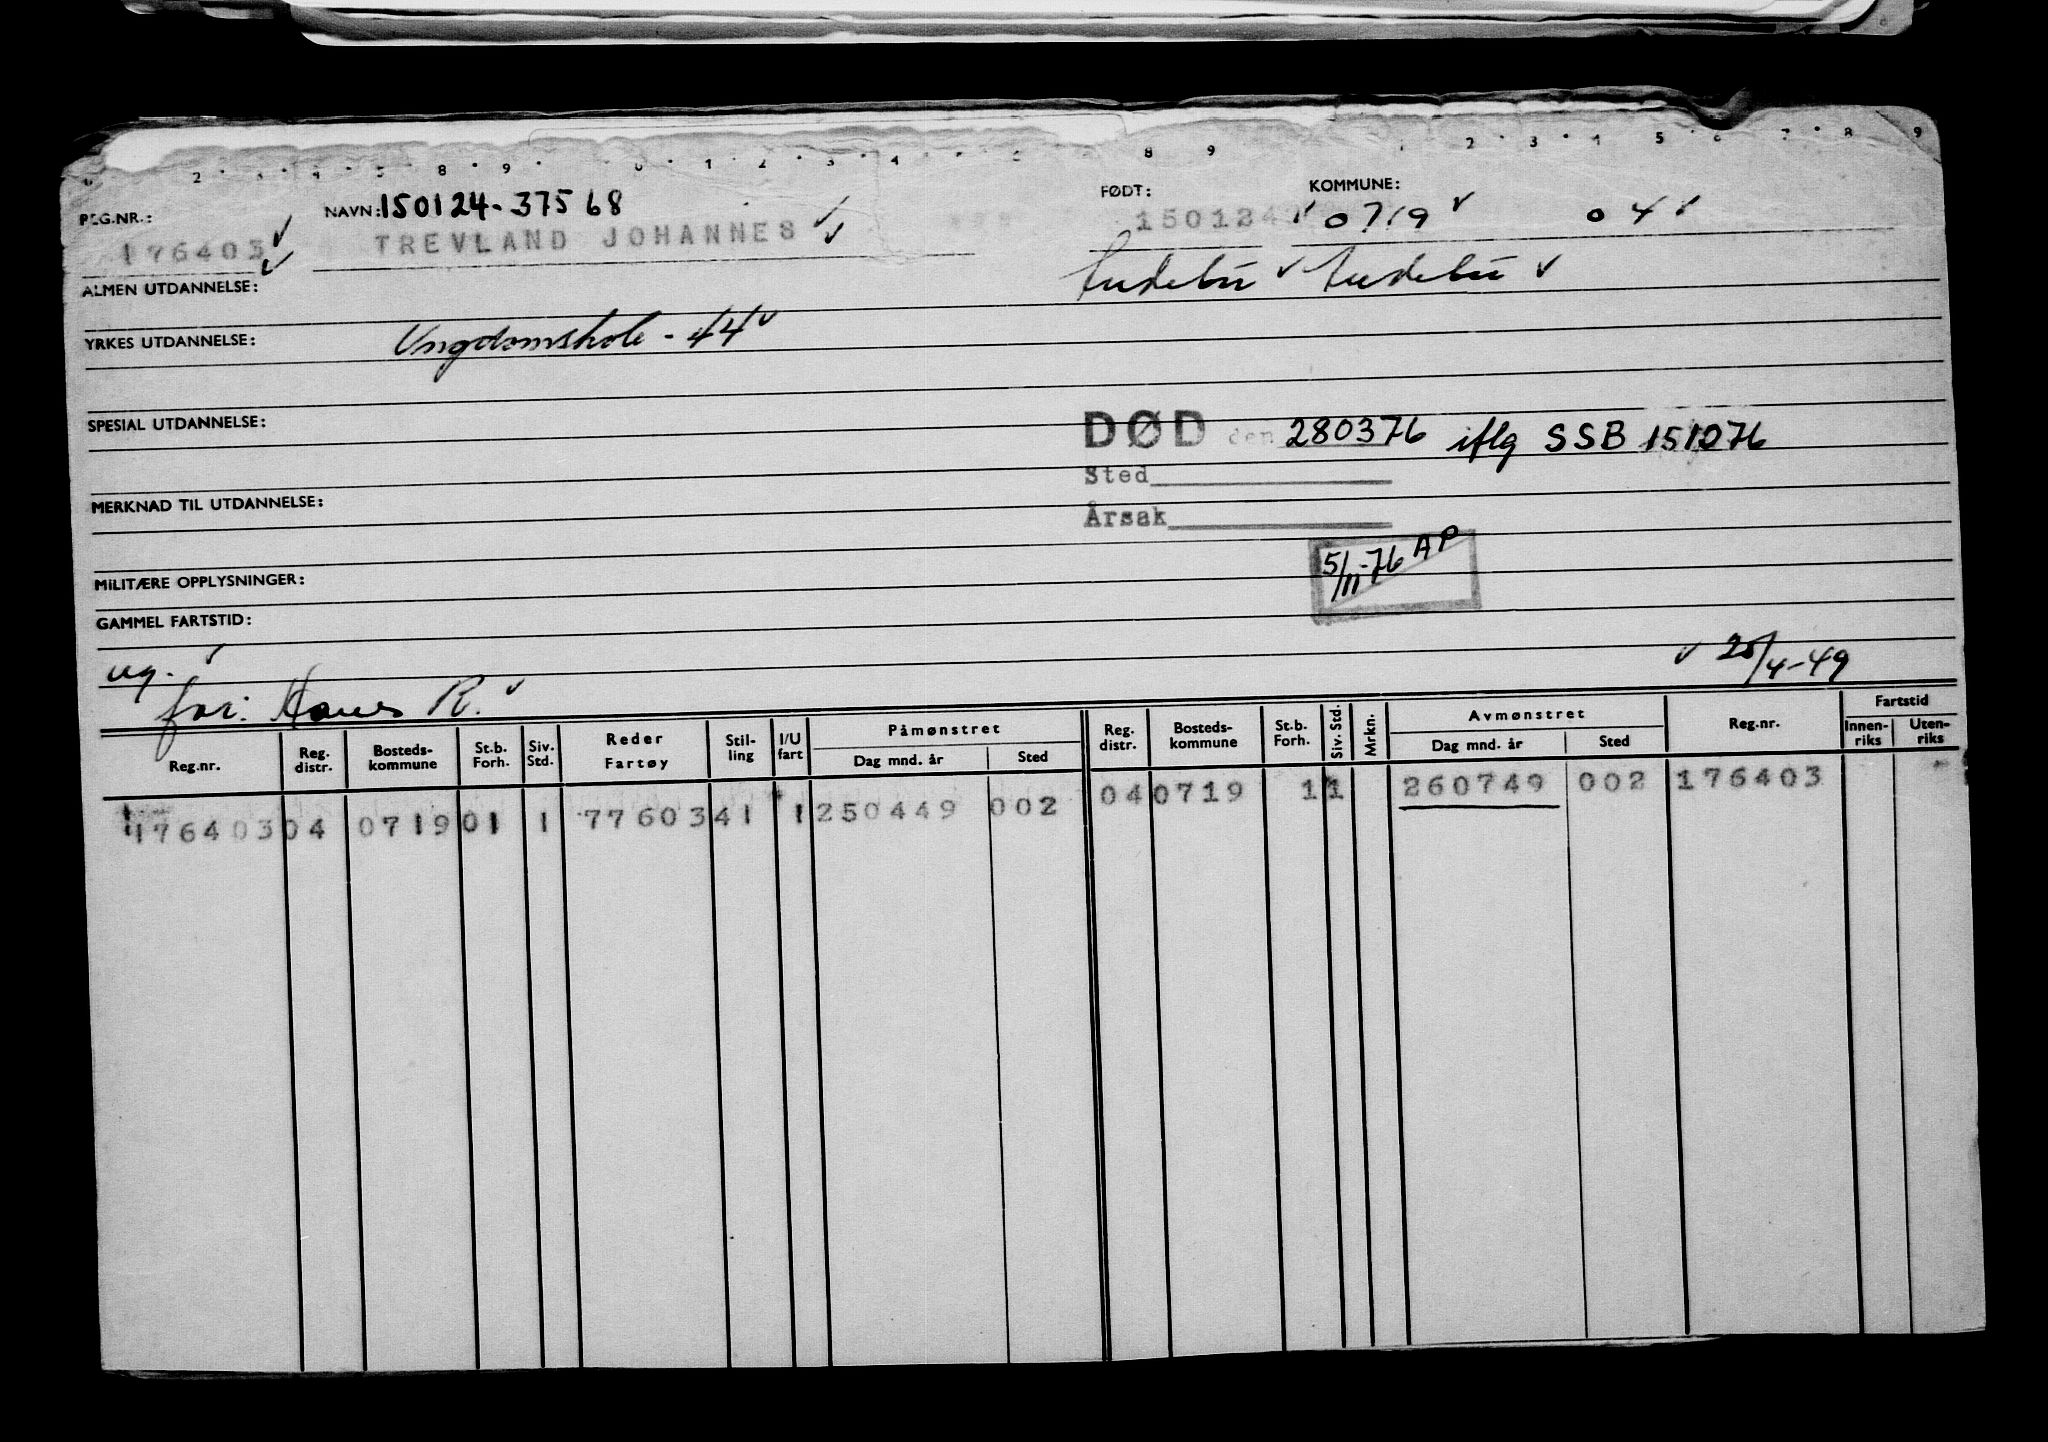 2 4 8 9 0 1 2 3 4 8 9 2 3 4 5 6 7 8 9
REG.NR.: NAVN: 150124-37568 FØDT: KOMMUNE:
176403 TREVLAND JOHANNES 150124 0719 04
ALMEN UTDANNELSE: Andebu Andebu
YRKES UTDANNELSE: Ungdomskole - 44
SPESIAL UTDANNELSE:
DØD den 280376 iflg SSB 151076
Sted
MERKNAD TIL UTDANNELSE:
Årsak
5/11-76 AP
MILITÆRE OPPLYSNINGER:
GAMMEL FARTSTID:
ug. 25/4-49
far: Hans R.
Reg.nr. Reg. distr. Bosteds- kommune St.b. Forh. Siv. Std. Reder Fartøy Stil- ling I/U fart Påmønstret Dag mnd. år Sted Reg. distr. Bosteds- kommune St.b. Forh. Siv. Std. Mrkn. Avmønstret Dag mnd. år Sted Reg.nr. Fartstid Innen- riks Uten- riks
176403 04 0719 01 1 77603 41 1 250449 002 04 0719 1 1 260749 002 176403